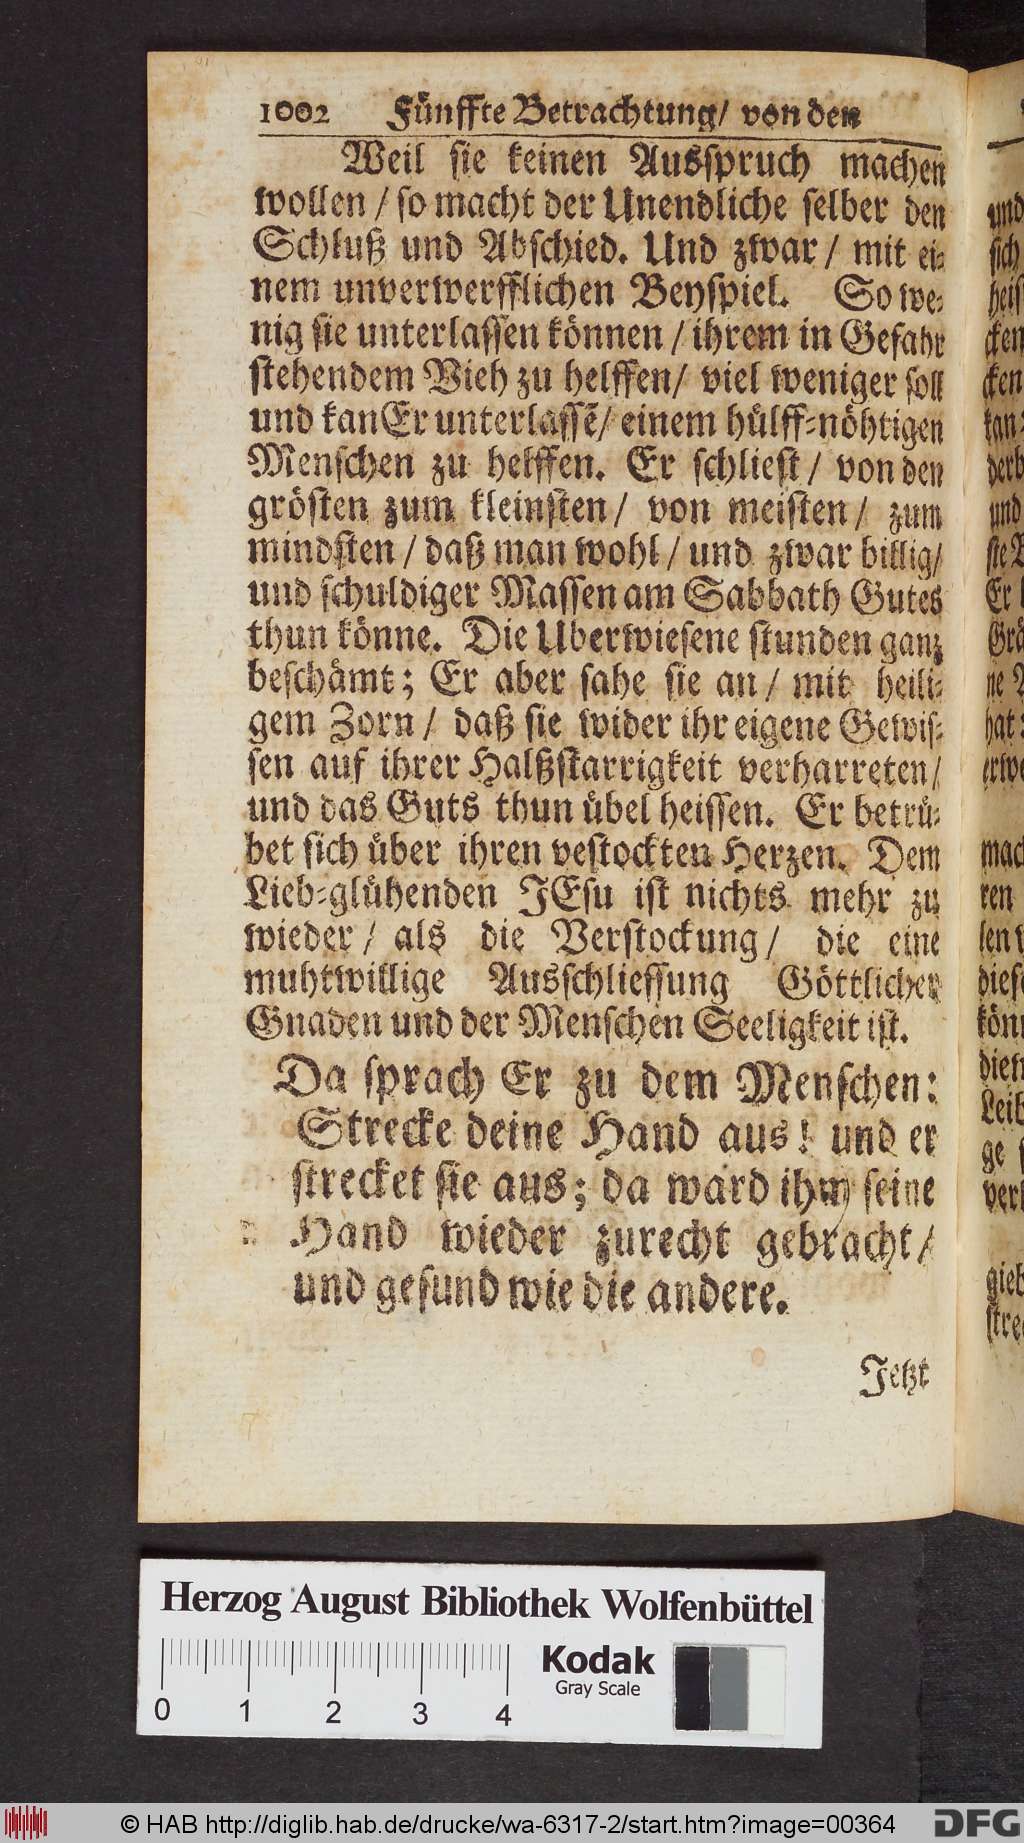 1002 Fünffte Betrachtung/ von den
Weil sie keinen Ausspruch machen
wollen / so macht der Unendliche selber den
Schluß und Abschied. Und zwar / mit ei-
nem unverwerfflichen Beyspiel. So we-
nig sie unterlassen können / ihrem in Gefahr
stehendem Vieh zu helffen / viel weniger soll
und kan Er unterlassẽ / einem hülff-nöhtigen
Menschen zu helffen. Er schliest / von den
grösten zum kleinsten / von meisten / zum
mindsten / daß man wohl / und zwar billig /
und schuldiger Massen am Sabbath Gutes
thun könne. Die Uberwiesene stunden ganz
beschämt; Er aber sahe sie an / mit heili-
gem Zorn / daß sie wider ihr eigene Gewis-
sen auf ihrer Halßstarrigkeit verharreten /
und das Guts thun übel heissen. Er betrü-
bet sich über ihren vestockten Herzen. Dem
Lieb-glühenden JEsu ist nichts mehr zu
wieder / als die Verstockung / die eine
muhtwillige Ausschliessung Göttlicher
Gnaden und der Menschen Seeligkeit ist.
Da sprach Er zu dem Menschen:
Strecke deine Hand aus! und er
strecket sie aus; da ward ihm seine
Hand wieder zurecht gebracht /
und gesund wie die andere.
Jetzt
und
sich
heis
cken
cken
kan-
derb
und
sie
Er
Grö
ne
hat
erwe
mach
ren
len
diese
könn
dien
Leib
ge
ver
gieb
stre
Herzog August Bibliothek Wolfenbüttel
Kodak
Gray Scale
0 1 2 3 4
© HAB http://diglib.hab.de/drucke/wa-6317-2/start.htm?image=00364
DFG